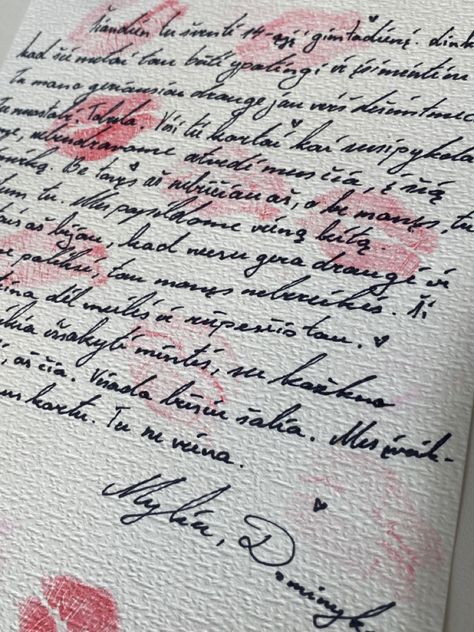 Šiandien tu šventi 14-ąjį gimtadienį.
kad šie metai tau būtų ypatingi ir įsimintini
Tu mano geriausia draugė jau virš dešimtmeč
Tobula. Visi tie kartai kai susipykdavo
atvedė mus čia, į šią
Be tavęs aš nebūčiau aš, o be manęs, tu
tu. Mes papildome viena kitą.
aš bijau, kad nesu gera draugė ir
paliksi, tau manęs nebereikės. Ši
dėl meilės ir rūpesčio tau.
išsakyti mintis, su kažkuo
aš čia. Visada būsiu šalia. Mes įveik-
kartu. Tu ne viena.
Myliu, Dominyk